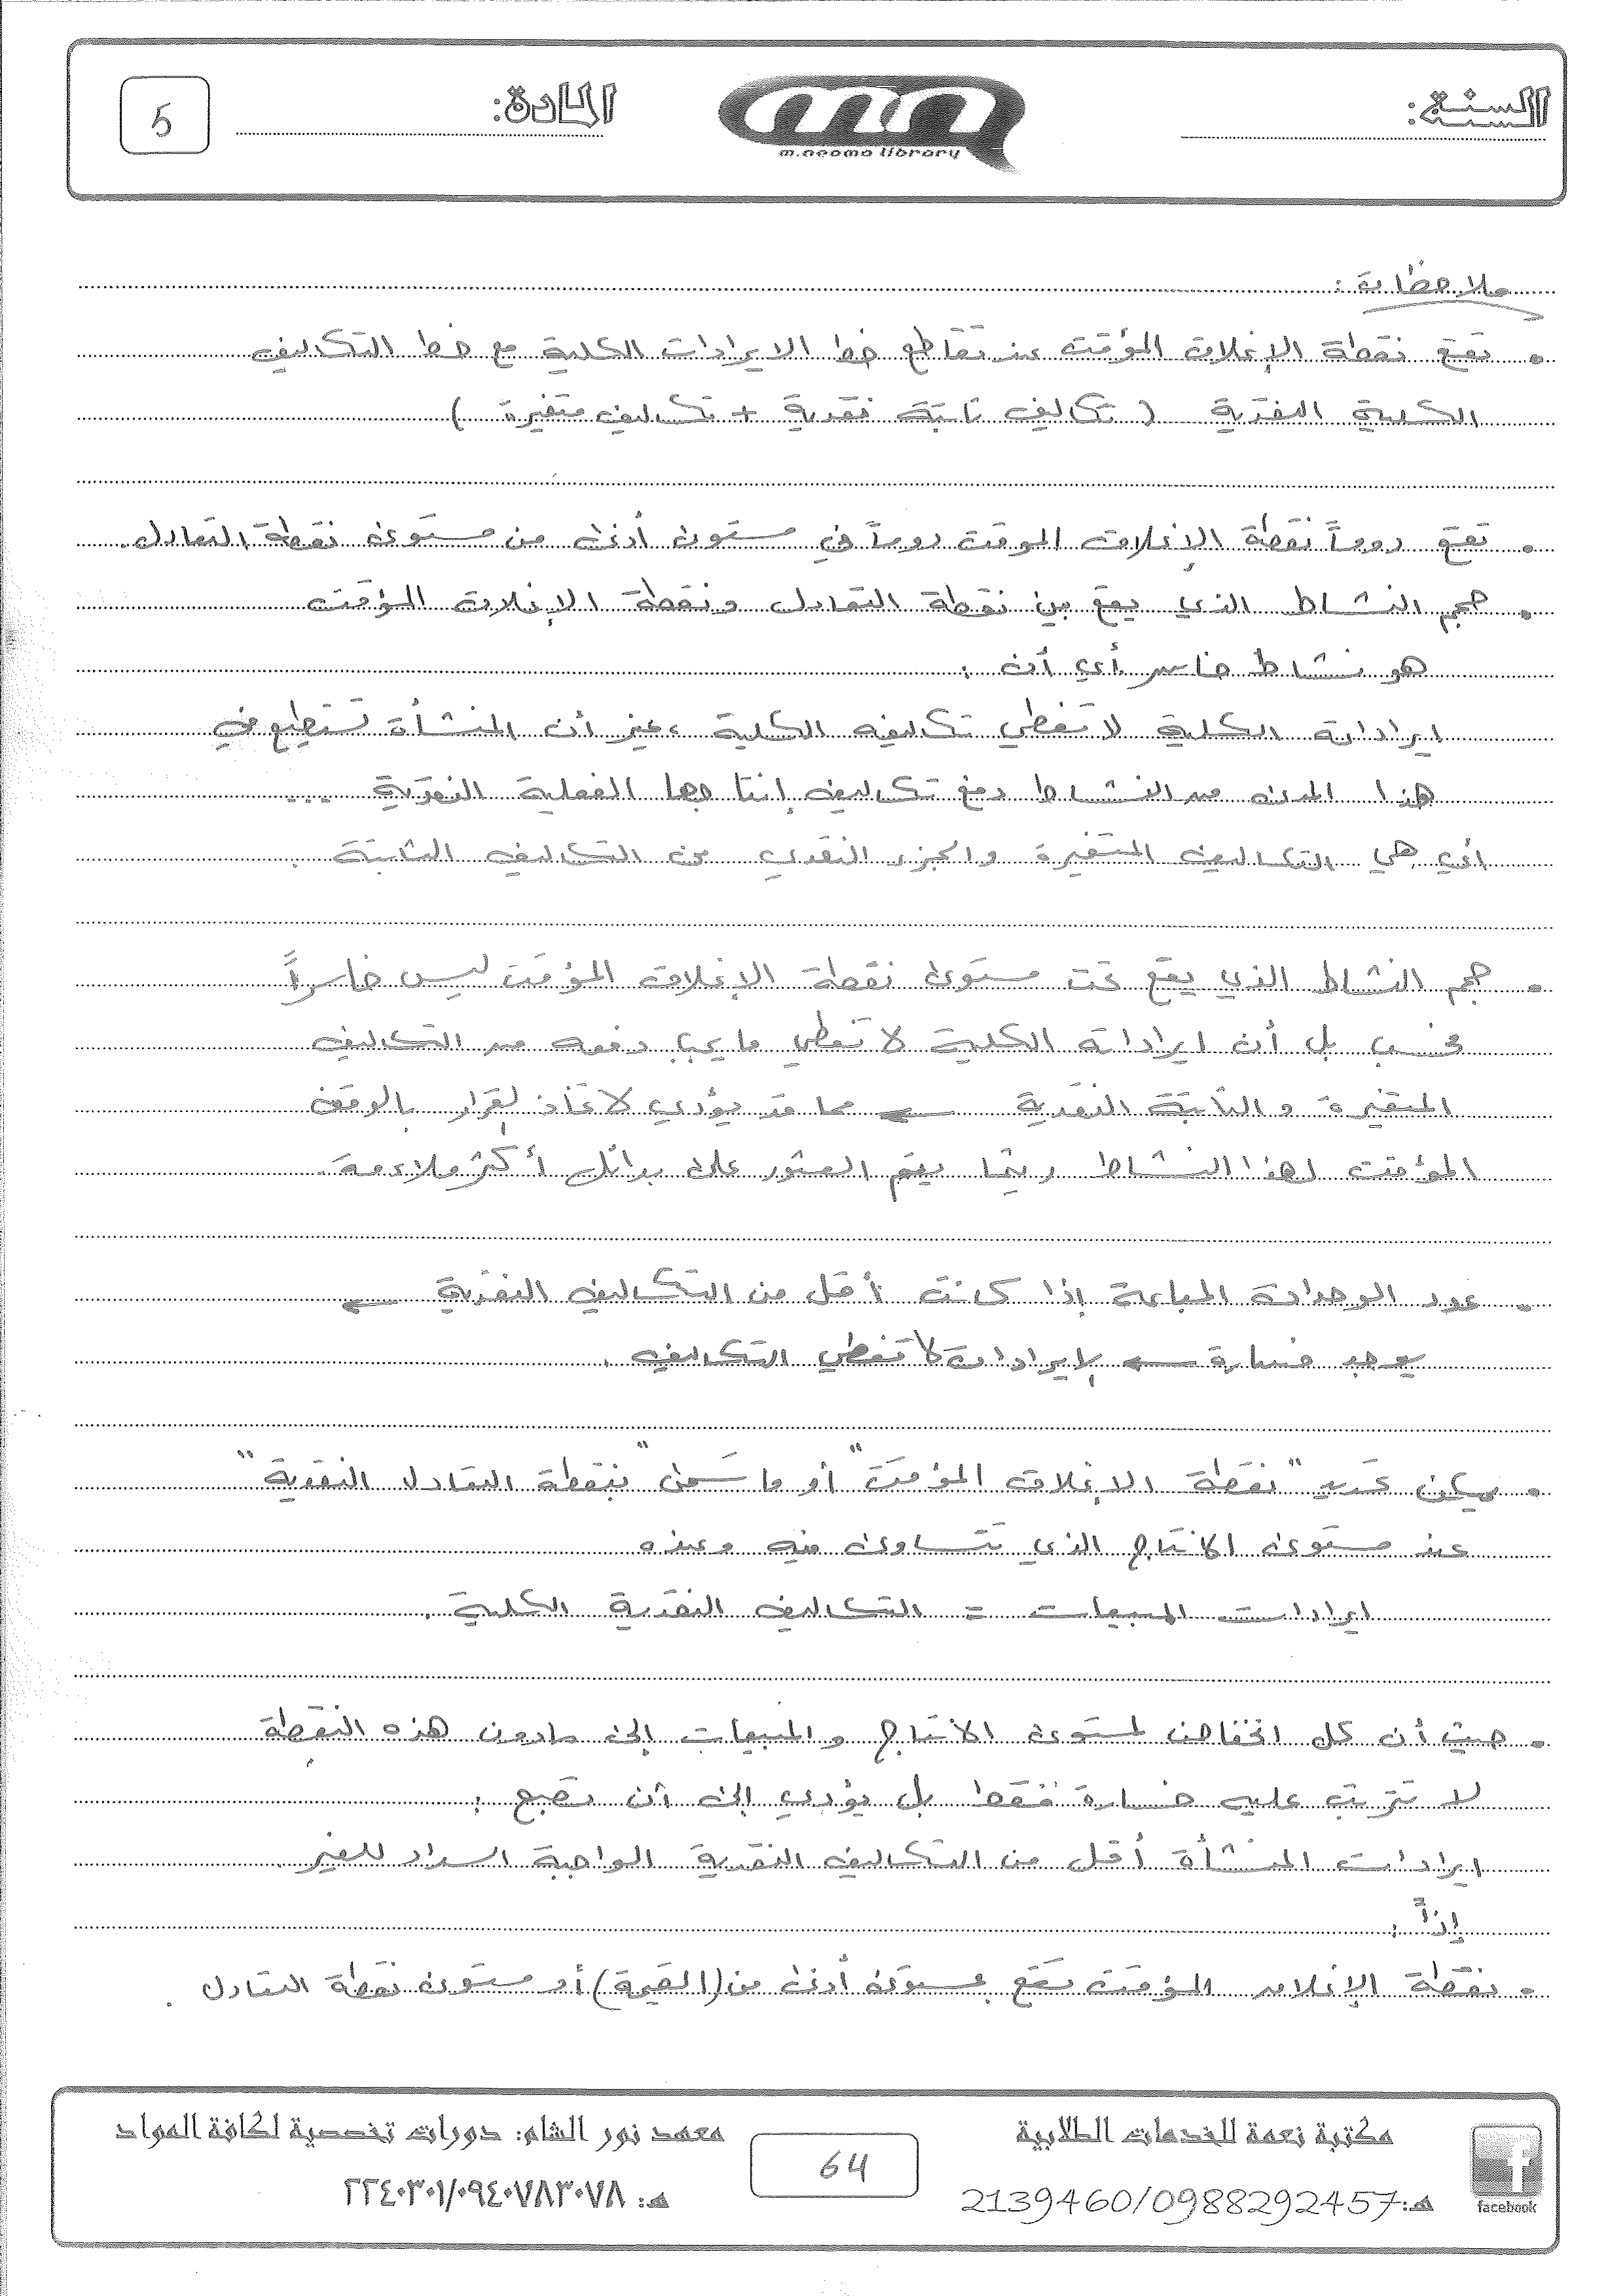 السنة:
المادة:
5
m.neoma library
ملاحظات :
• تقع نقطة الإغلاق المؤقت عند تقاطع خط الايرادات الكلية مع خط التكاليف
الكلية النقدية ( تكاليف ثابتة نقدية + تكاليف متغيرة )
• تقع دوماً نقطة الإغلاق الموقت دوماً في مستوى أدنى من مستوى نقطة التعادل.
• حجم النشاط الذي يقع بين نقطة التعادل ونقطة الإغلاق المؤقت
هو نشاط خاسر أي أن :
ايراداته الكلية لا تغطي تكاليفه الكلية ، غير أن المنشأة تستطيع في
هذا المدى من النشاط دفع تكاليف إنتاجها الفعلية النقدية ...
أي هي التكاليف المتغيرة والجزء النقدي من التكاليف الثابتة .
• حجم النشاط الذي يقع تحت مستوى نقطة الإغلاق المؤقت ليس خاسراً
فحسب بل أن ايراداته الكلية لا تغطي ما يجب دفعه من التكاليف
المتغيرة والثابتة النقدية ← مما قد يؤدي لاتخاذ لقرار بالوقف
المؤقت لهذا النشاط ريثما يتم العثور على بدائل أكثر ملاءمة.
• عدد الوحدات المباعة إذا كانت أقل من التكاليف النقدية ←
يوجد خسارة ← لإيرادات لا تغطي التكاليف .
• يمكن تحديد "نقطة الإغلاق المؤقت" أو ما تسمى "بنقطة التعادل النقدية"
عند مستوى الانتاج الذي تتساوى فيه وعنده
ايرادات المبيعات = التكاليف النقدية الكلية .
• حيث أن كل انخفاض لمستوى الانتاج والمبيعات إلى مادون هذه النقطة
لا تترتب عليه خسارة فقط بل يؤدي إلى أن تصبح :
ايرادات المنشأة أقل من التكاليف النقدية الواجبة السداد للغير .
إذاً :
• نقطة الإغلاق المؤقت تقع بمستوى أدنى من (القيمة) أو مستوى نقطة التعادل .
مكتبة نعمة للخدمات الطلابية
هـ: 2139460/0988292457
facebook
64
معهد نور الشام: دورات تخصصية لكافة المواد
هـ: ٢٢٤٠٣٠١/٠٩٤٠٧٨٣٠٧٨